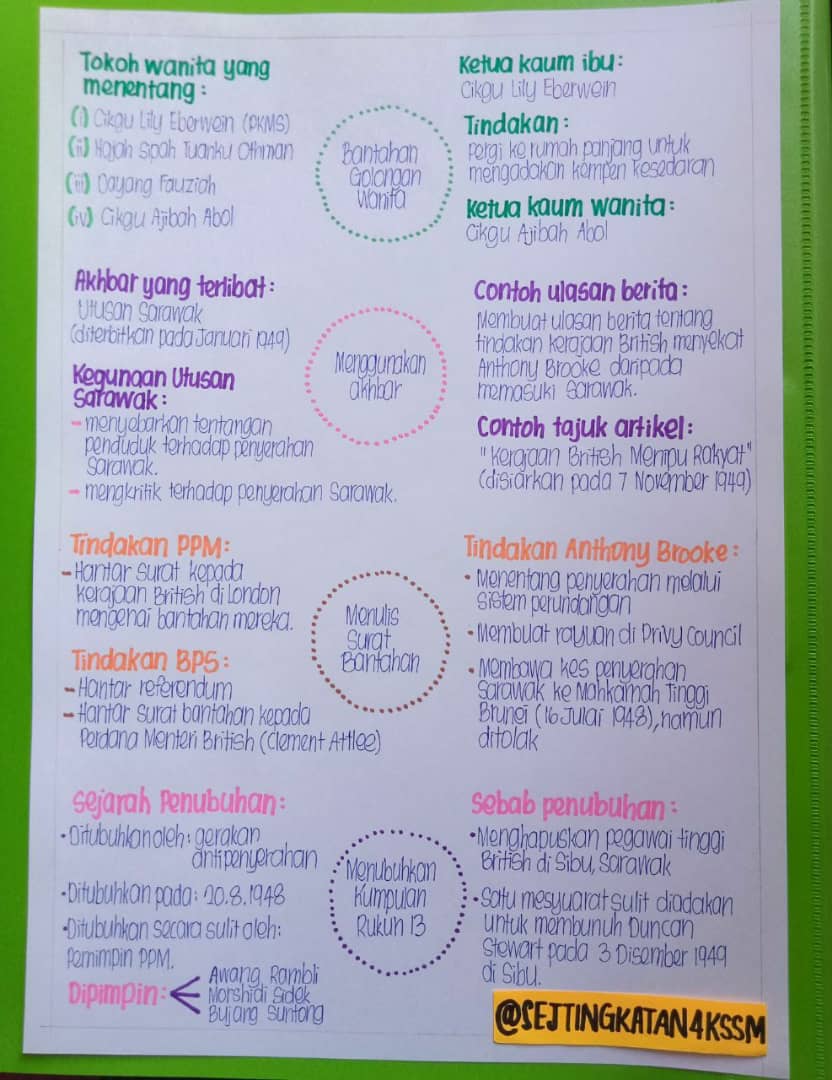 Tokoh wanita yang
menentang :
(i) Cikgu Lily Eberwein (PKMS)
(ii) Hajah Spah Tuanku Othman
(iii) Dayang Fauziah
(iv) Cikgu Ajibah Abol
Bantahan
Golongan
Wanita
Ketua kaum ibu :
Cikgu Lily Eberwein
Tindakan :
Pergi ke rumah panjang untuk
mengadakan kempen kesedaran
Ketua kaum wanita :
Cikgu Ajibah Abol
Akhbar yang terlibat :
Utusan Sarawak
(diterbitkan pada Januari 1949)
Kegunaan Utusan
Sarawak :
- menyebarkan tentangan
penduduk terhadap penyerahan
Sarawak.
- mengkritik terhadap penyerahan Sarawak.
Menggunakan
akhbar
Contoh ulasan berita :
Membuat ulasan berita tentang
tindakan kerajaan British menyekat
Anthony Brooke daripada
memasuki Sarawak.
Contoh tajuk artikel :
"Kerajaan British Menipu Rakyat"
(disiarkan pada 7 November 1949)
Tindakan PPM:
- Hantar surat kepada
kerajaan British di London
mengenai bantahan mereka.
Tindakan BPS :
- Hantar referendum
- Hantar surat bantahan kepada
Perdana Menteri British (Clement Attlee)
Menulis
Surat
Bantahan
Tindakan Anthony Brooke :
• Menentang penyerahan melalui
sistem perundangan
• Membuat rayuan di Privy Council
• Membawa kes penyerahan
Sarawak ke Mahkamah Tinggi
Brunei (16 Julai 1948), namun
ditolak
Sejarah Penubuhan :
• Ditubuhkan oleh : gerakan
antipenyerahan
• Ditubuhkan pada : 20.8.1948
• Ditubuhkan secara sulit oleh :
Pemimpin PPM.
Dipimpin :
Awang Rambli
Morshidi Sidek
Bujang Suntong
Menubuhkan
Kumpulan
Rukun 13
Sebab penubuhan :
• Menghapuskan pegawai tinggi
British di Sibu, Sarawak
• Satu mesyuarat sulit diadakan
untuk membunuh Duncan
Stewart pada 3 Disember 1949
di Sibu.
@SEJTINGKATAN4KSSM